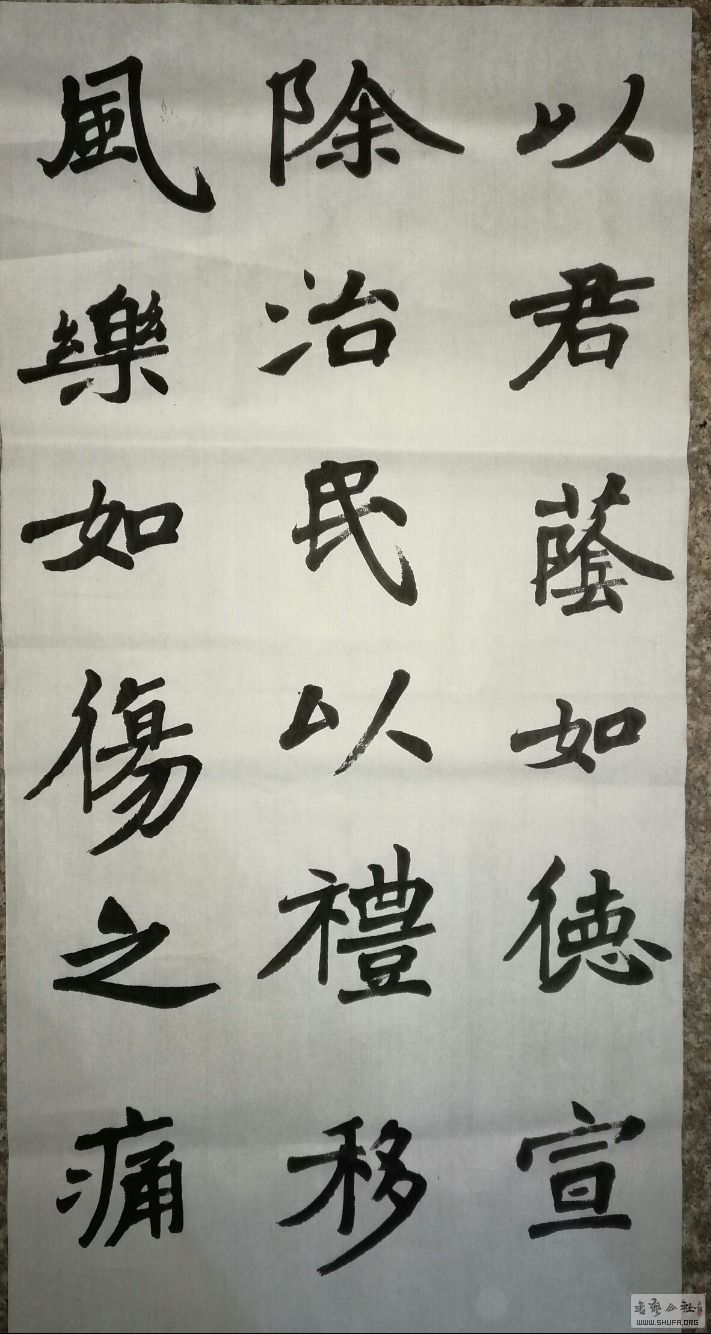 以君蔭如徳宣
除治民以禮移
風樂如傷之痛
書藝公社
WWW.SHUFA.ORG